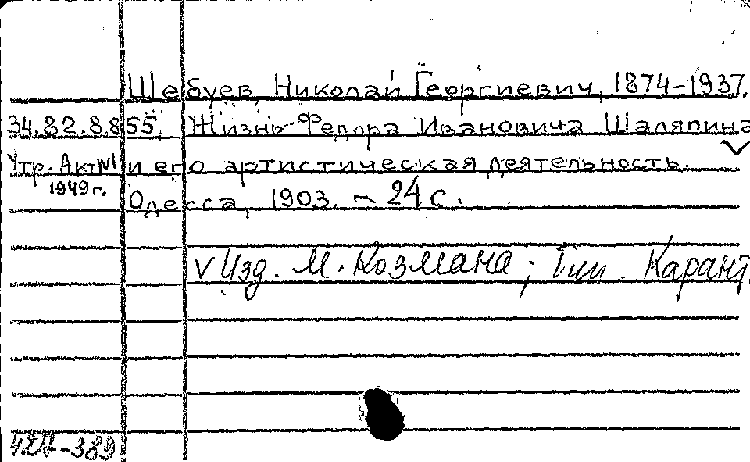 Шебуев, Николай Георгиевич, 1874-1937.
34.82.8.855. Жизнь Федора Ивановича Шаляпина
Утр. Акт №1 и его артистическая деятельность.
1949 г.
Одесса, 1903. - 24 с.
V Изд. М. Козмана; Тип. Карант.